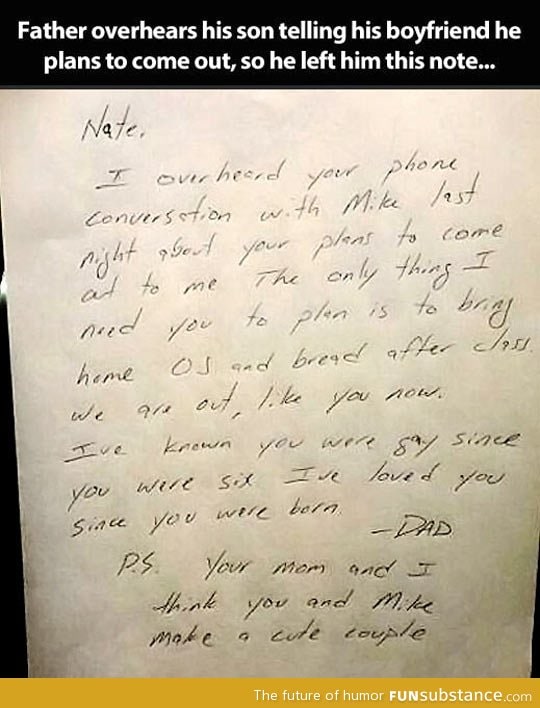 Father overhears his son telling his boyfriend he
plans to come out, so he left him this note...
Nate,
I overheard your phone
conversation with Mike last
night about your plans to come
out to me The only thing I
need you to plan is to bring
home OJ and bread after class.
We are out, like you now.
I've known you were gay since
you were six I've loved you
since you were born.
-DAD
P.S. Your mom and I
think you and Mike
make a cute couple
The future of humor FUNsubstance.com